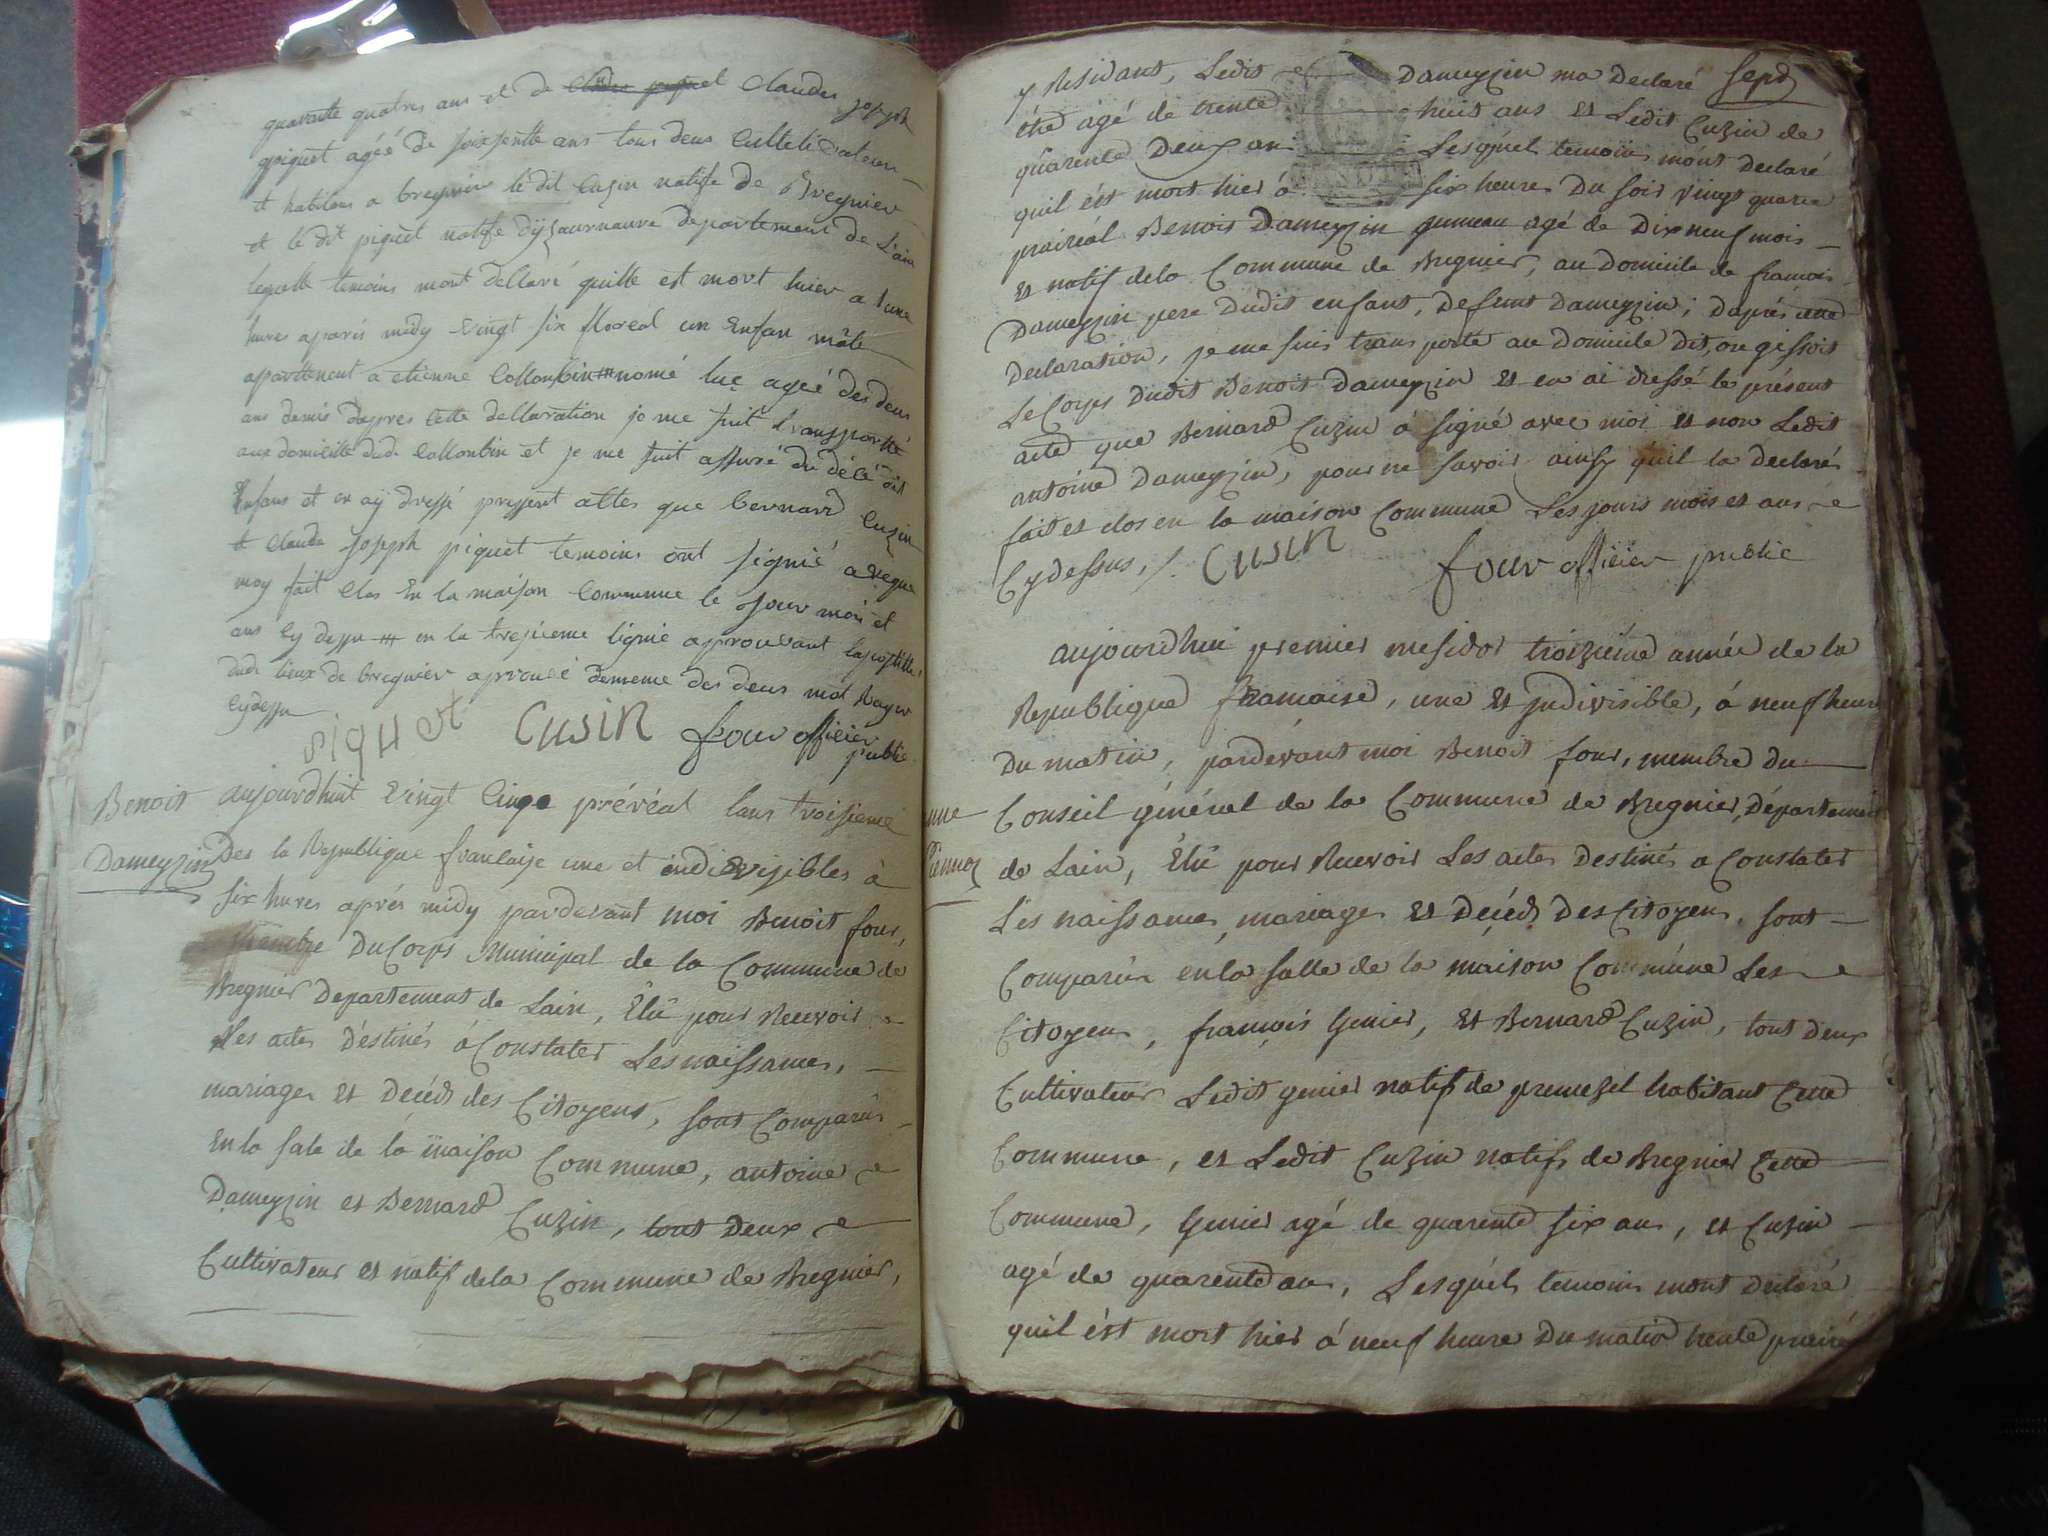 quarante quatres ans et de Claudes joseph
piquet agéé de soixsentte ans tous deus Cultivateur
et habitans a bregnier le dit Cuzin natife de Bregnier
et le dit piquet natife departement de L'ain
lesqulle temoins mont dellaré quille est mort hier a lune
hures aparés midy vingt six floreal un Enfan mâle
appartenent a etienne Collonbin nomé luc ageé des deus
ans demis depres cette dellaration je me suit transporté
aux domicille dudi Collonbin et je me suit assuré du décé
Enfans et en aÿ dressé pressent attes que bernard Cuzin
et Claude joseph piquet temoins ont signié aveque
moy fait Clos En la maison Commune le jour mois et
ans Cy dessu en la tresieme lignie approuvant lapostille
dudi lieux de bregnier aprouvé dememe des deus mot Rayer
Cydessu
piquet Cusin four officier
public
Benoit aujourdhuit vingt Cinqe préréal lans troisieme
Dameyzin des la Republique franlaise une et indivisibles à
six hures aprés midy pardevant moi Benoit four,
membre Du Corps Municipal de la Commune de
Bregnier Departement de Lain, Elû pour Recevoir
Les actes Déstinés á Constater Les naissances,
mariages et Decéds des Citoyens, sont Comparûs
En la sale de la maison Commune, antoine
Dameyzin et Bernard Cuzin, tout Deux
Cultivateurs et natifs dela Commune de Bregnier,
y Residants, Ledit Dameyzin ma Declaré sept
étre agé de trente huit ans et Ledit Cuzin de
quarente Deux ans Lesquels temoins mónt Declaré
quil ést mort hier á six heures Du soir vingt quatre
prairéal Benoit Dameyzin jumeau agé de Dix neuf mois
et natif dela Commune de Bregnier, au Domicile de francois
Dameyzin pere Dudit enfant, Defunt Dameyzin; Daprés cette
Declaration, je me suis trans porté au Domicile Dit, ou gissoit
Le Corps Dudit Benoit Dameyzin et en ai dressé le présent
acte que Bernard Cuzin á signé avec moi et non Ledit
antoine Dameyzin, pour ne savoir ainsy qu'il la declaré
fait et clos en la maison Commune Les jours mois et ans
Cydessus, /. Cusin four officier public
aujourdhui premier mesidor troizieme année de la
Republique francaise, une et jndivisible, á neuf heures
Du matin, pardevant moi Benoit four, membre du
Conseil général de la Commune de Bregnier, Département
de Lain, Elû pour Recevoir Les actes Destinés a Constater
Les naissances, mariages et Décéds Des Citoyens, sont
Comparûs en la salle de la maison Commune Les
Citoyens, françois Genier, et Bernard Cuzin, tout deux
Cultivateurs Ledit genier natif de premezel habitant Cette
Commune, et Ledit Cuzin natifs de Bregnier Cette
Commune, Genier agé de quarente six ans, et Cuzin
agé de quarente ans, Lesquéls temoins mont Declaré
quil ést mort hier á neuf heures Du matin trente prairé